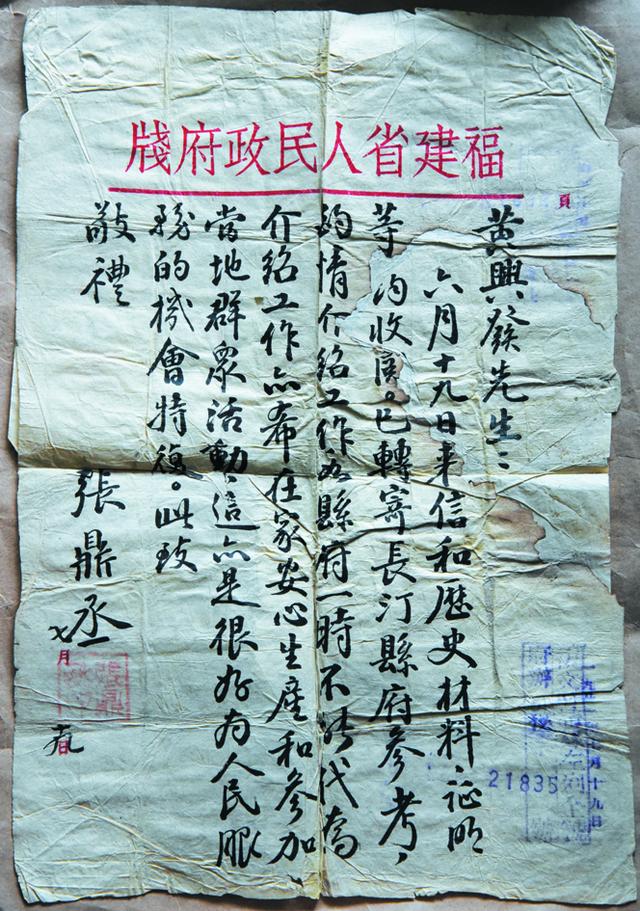 福建省人民政府牋
頁
黃興發先生：
六月十九日來信和歷史材料、証明
等收閱。已轉寄長汀縣府參考，
酌情介紹工作如縣府一時不能代為
介紹工作亦希在家安心生產和參加
當地群眾活動，這亦是很好為人民服
務的機會特復。此致
敬禮
張鼎丞
七月
日
月十九日
21835